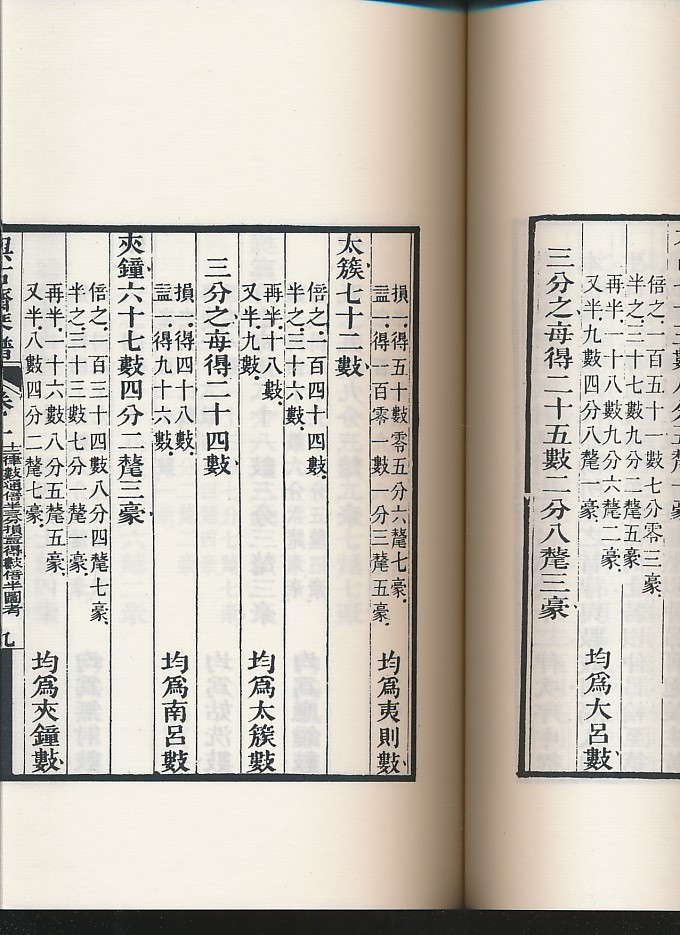 倍之、一百五十一數七分零三豪、
半之、三十七數九分二氂五豪、
再半、一十八數九分六氂二豪、
又半、九數四分八氂一豪、
均爲大呂數、
三分之每得二十五數二分八氂三豪、
損一、得五十數零五分六氂七豪、
益一、得一百零一數一分三氂五豪、
均爲夷則數、
太簇七十二數、
倍之、一百四十四數、
半之、三十六數、
再半、十八數、
又半、九數、
均爲太簇數、
三分之每得二十四數、
損一、得四十八數、
益一、得九十六數、
均爲南呂數、
夾鐘六十七數四分二氂三豪、
倍之、一百三十四數八分四氂七豪、
半之、三十三數七分一氂一豪、
再半、一十六數八分五氂五豪、
又半、八數四分二氂七豪、
均爲夾鐘數、
與古齋琴譜
卷一
九